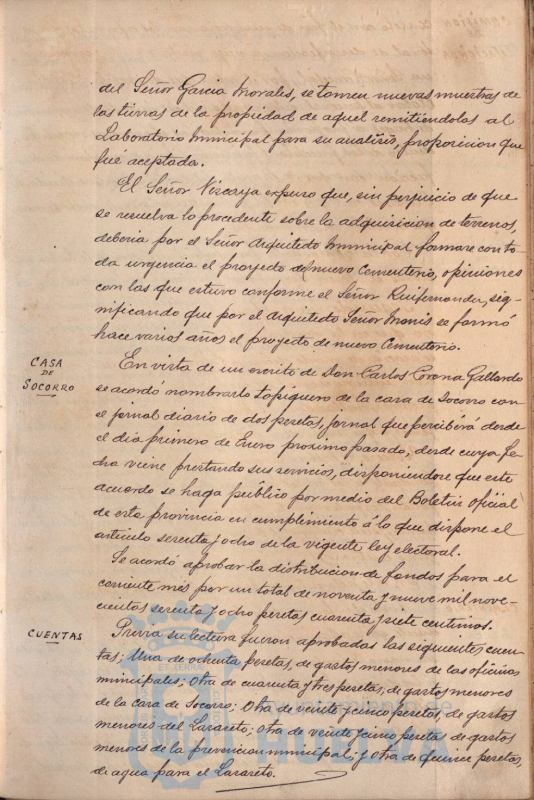 del Señor Garcia Morales, se tomen nuevas muestras de
las tierras de la propiedad de aquel remitiendolas al
Laboratorio Municipal para su analisis, proposicion que
fue aceptada.
El Señor Vizcaya expuso que, sin perjuicio de que
se resuelva lo procedente sobre la adquisicion de terrenos,
deberia por el Señor Arquitecto Municipal formarse con to
da urgencia el proyecto del nuevo Cementerio, opiniones
con las que estuvo conforme el Señor Ruifernandez, sig-
nificando que por el Arquitecto Señor Monis se formó
hace varios años el proyecto de nuevo Cementerio.
CASA
DE
SOCORRO
En vista de un escrito de Don Carlos Corona Gallardo
se acordó nombrarlo topiquero de la casa de Socorro con
el jornal diario de dos pesetas, jornal que percibirá desde
el dia primero de Enero proximo pasado, desde cuya fe
cha viene prestando sus servicios, disponiendose que este
acuerdo se haga público por medio del Boletin oficial
de esta provincia en cumplimiento á lo que dispone el
articulo sesenta y ocho de la vigente ley electoral.
Se acordó aprobar la distribucion de fondos para el
corriente mes por un total de noventa y nueve mil nove-
cientos sesenta y ocho pesetas cuarenta y siete centimos.
CUENTAS
Previa su lectura fueron aprobadas las siguientes cuen
tas; Una de ochenta pesetas, de gastos menores de las oficinas
municipales; otra de cuarenta y tres pesetas, de gastos menores
de la casa de Socorro; otra de veinte y cinco pesetas, de gastos
menores del Lazareto; otra de veinte y cinco pesetas de gastos
menores de la prevencion municipal; y otra de quince pesetas,
de agua para el Lazareto.